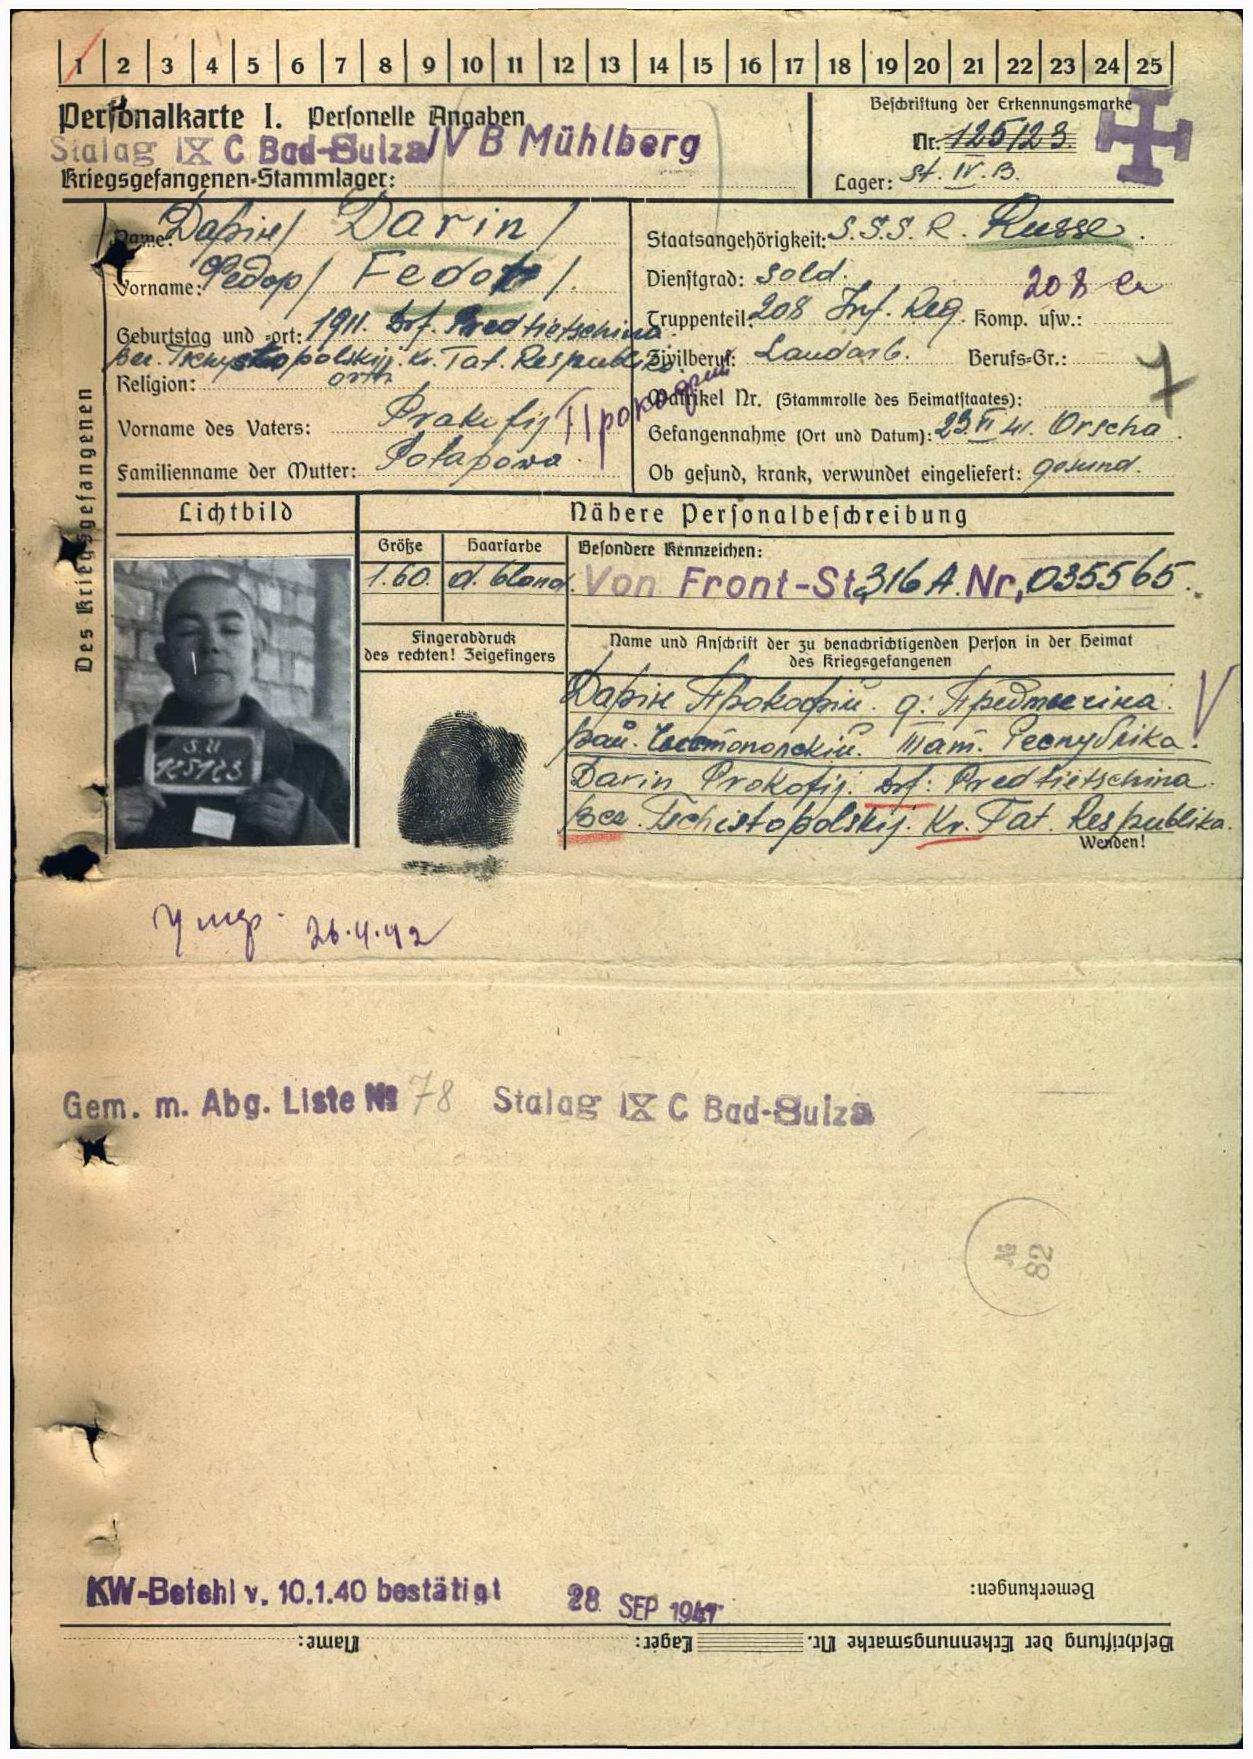 1 2 3 4 5 6 7 8 9 10 11 12 13 14 15 16 17 18 19 20 21 22 23 24 25
Personalkarte I. Personelle Angaben
Stalag IX C Bad-Sulza IV B Mühlberg
Kriegsgefangenen-Stammlager:
Beschriftung der Erkennungsmarke
Nr. 125123.
Lager: St. IV. B.
Des Kriegsgefangenen
Name: Дарін / Darin /
Vorname: Федор / Fedor /.
Geburtstag und -ort: 1911. Drf. Predtietschina
Bez. Tschystopolskij. Kr. Tat. Respublika.
Religion: orth
Vorname des Vaters: Prakofij Прокофий
Familienname der Mutter: Potapowa.
Staatsangehörigkeit: S.S.S.R. Russe.
Dienstgrad: Sold.
208
Truppenteil: 208 Inf. Reg. Komp. usw.:
Zivilberuf: Landarb. Berufs-Gr.:
7
Matrikel Nr. (Stammrolle des Heimatstaates):
Gefangennahme (Ort und Datum): 23. VI 41. Orscha.
Ob gesund, krank, verwundet eingeliefert: gesund.
Lichtbild
S.U
125123
Nähere Personalbeschreibung
Größe Haarfarbe Besondere Kennzeichen:
1.60. d. blond. Von Front-St. 316 A. Nr, 035565.
Fingerabdruck
des rechten! Zeigefingers
Name und Anschrift der zu benachrichtigenden Person in der Heimat
des Kriegsgefangenen
Дарін Прокофій. д: Предтечіна. V
Рай. Чистополскій. Тат. Республіка.
Darin Prokofij. Drf: Predtietschina.
Bez. Tschistopolskij. Kr. Tat. Respublika.
Wenden!
Умер. 26.4.42
Gem. m. Abg. Liste № 78 Stalag IX C Bad-Sulza
№
82
KW-Befehl v. 10.1.40 bestätigt 28 SEP 1941
Bemerkungen:
Beschriftung der Erkennungsmarke Nr. Lager: Name: